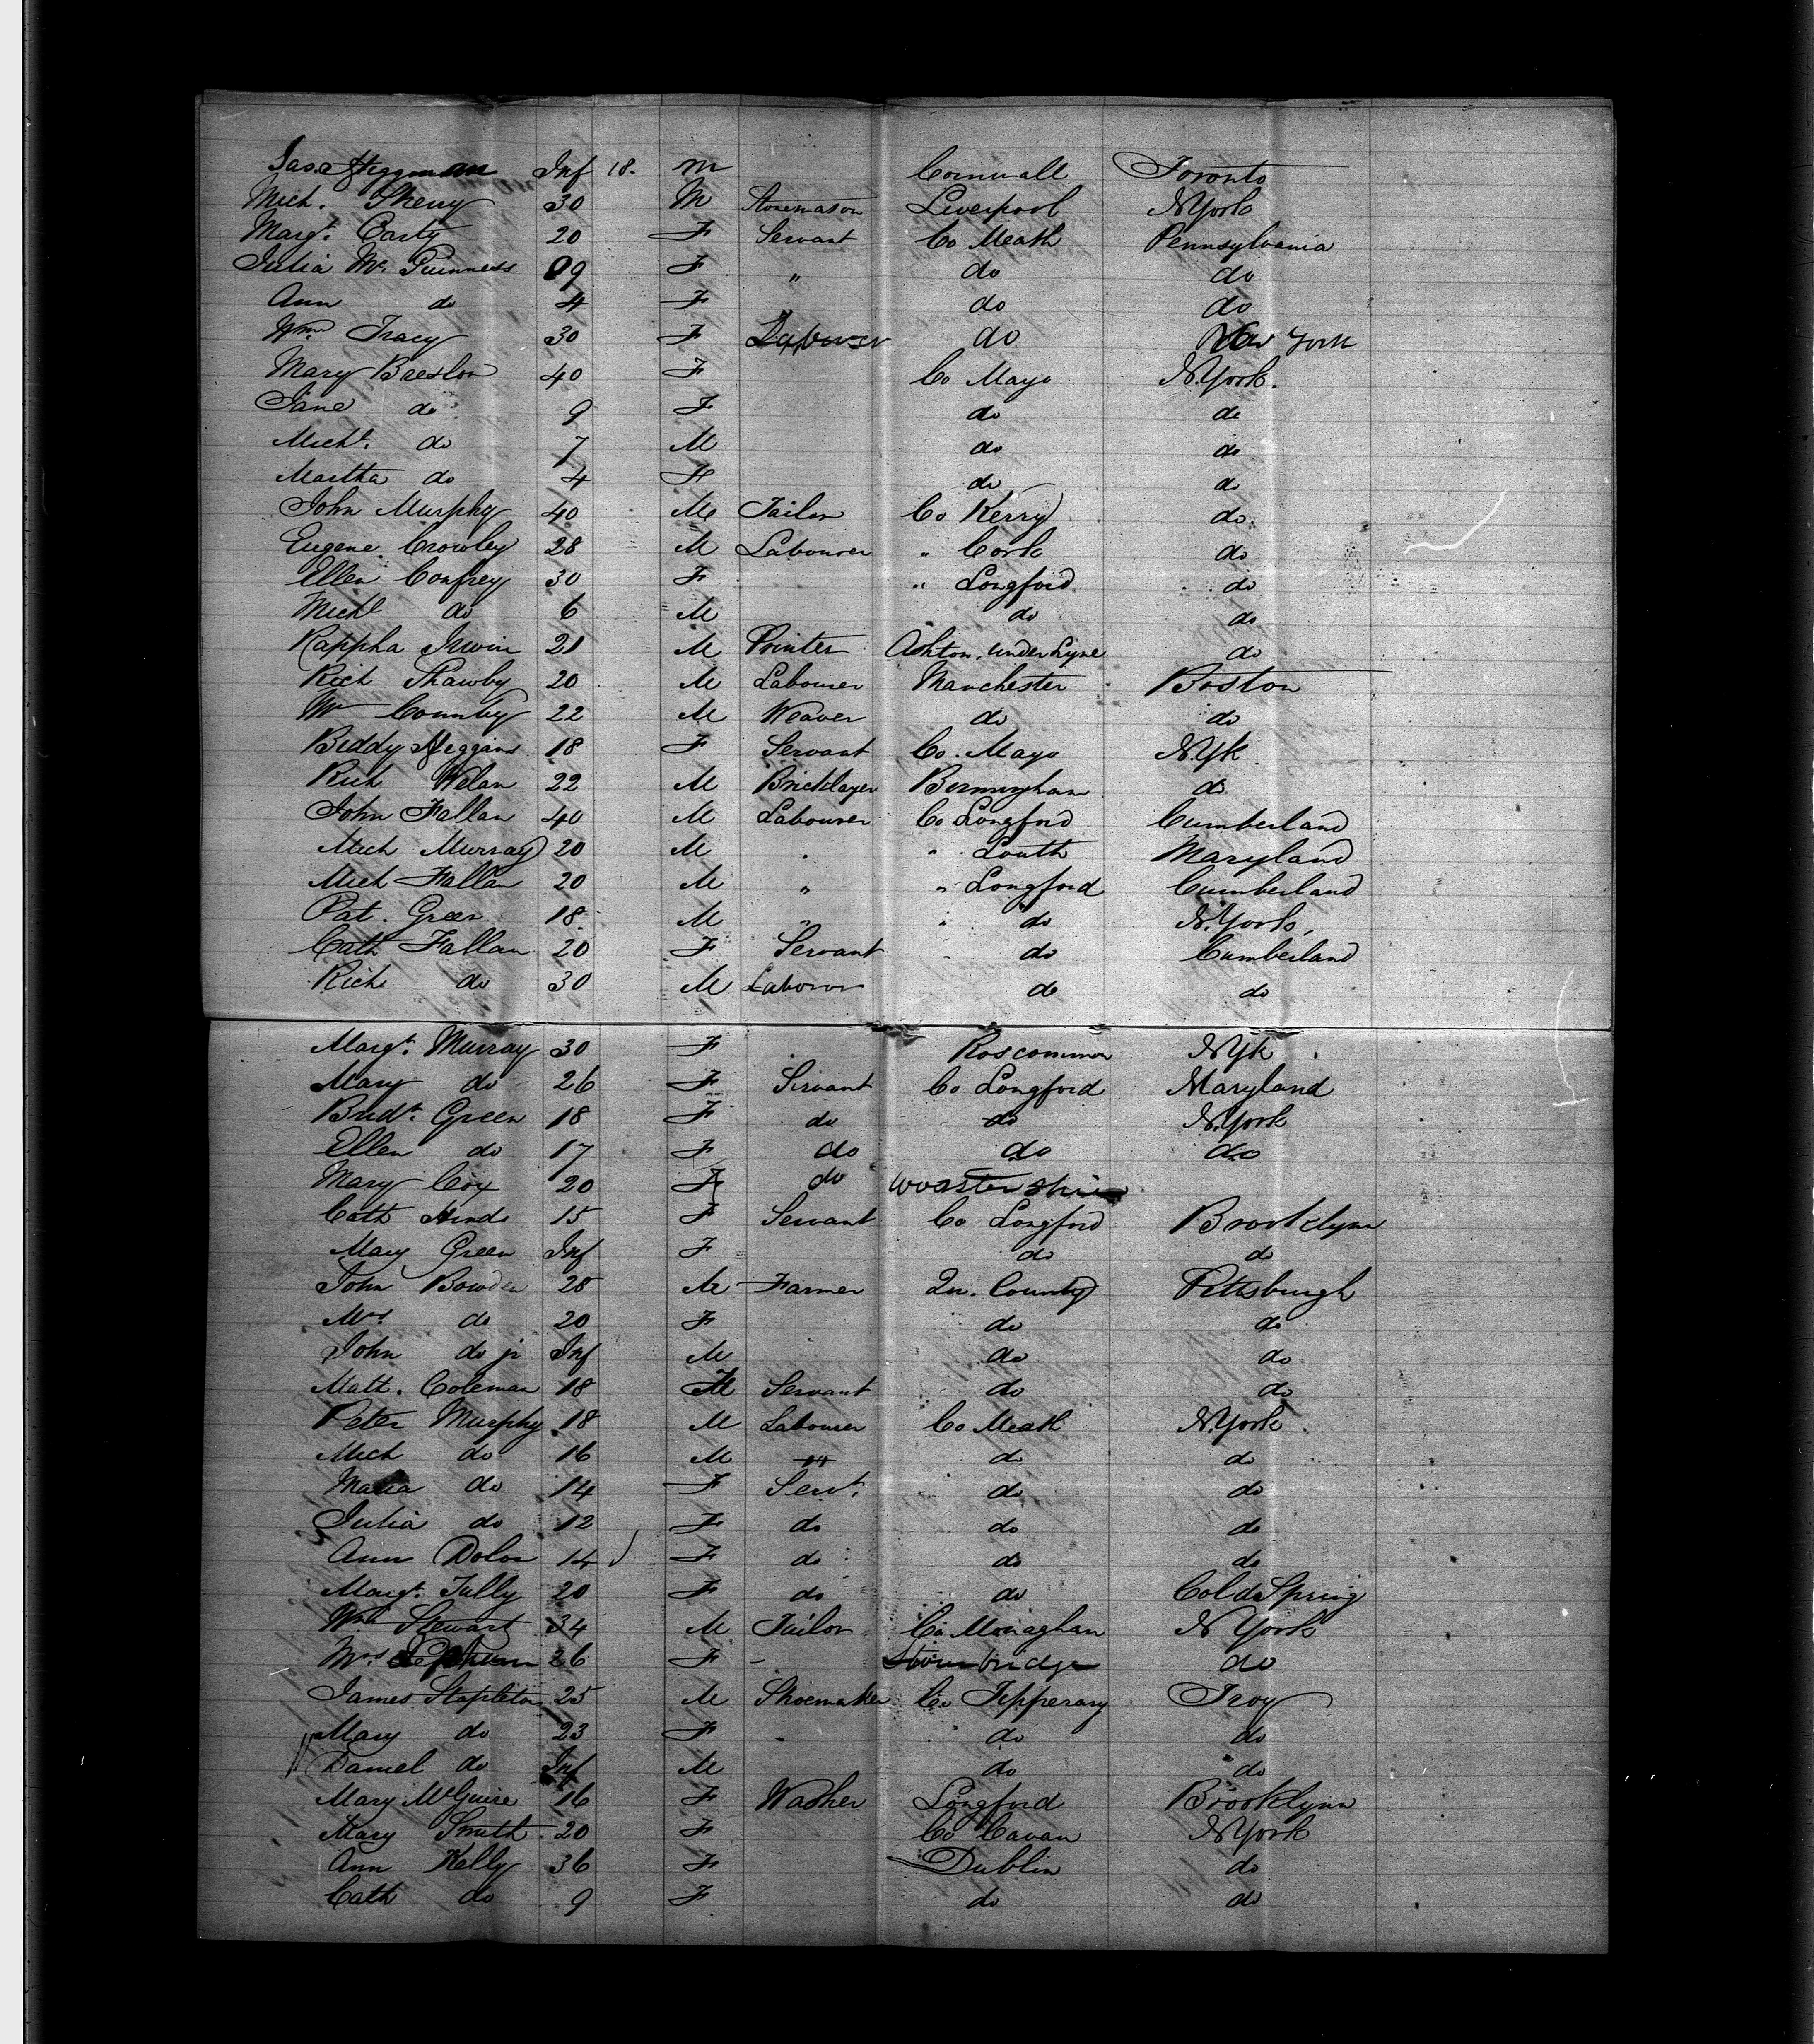 Jas. Inf 18. M Cornwall Toronto
Mich. Sherry 30 M Stonemason Liverpool N York
Margt. Carty 20 F Servant Co Meath Pennsylvania
Julia Mc Guinness 09 F " do do
Ann do 4 F do do
Wm. Tracy 30 F do New York
Mary Breslon 40 F Co Mayo N. York.
Jane do 9 F do do
Michl. do 7 M do do
Martha do 4 F do do
John Murphy 40 M Tailor Co Kerry do
Eugene Crowley 28 M Labourer " Cork do
Ellen Confrey 30 F " Longford do
Michl do 6 M do do
Rappha Irwin 21 M Printer Ashton, under Lyne do
Rich Thawby 20 M Labourer Manchester Boston
22 M Weaver do do
Biddy Heggans 18 F Servant Co. Mayo N.Yk
Rich Welan 22 M Bricklayer Bermingham do
John Fallan 40 M Labourer Co Longford Cumberland
Mich Murray 20 M " " Louth Maryland
Mich Fallan 20 M " " Longford Cumberland
Pat. Green 18 M " " do N. York,
Cath Fallan 20 F Servant do Cumberland
Rich do 30 M Laboror do do
Margt. Murray 30 F Roscommon N Yk
Mary do 26 F Servant Co Longford Maryland
Bridt. Green 18 F do do N. York
Ellen do 17 F do do do
Mary Cox 20 F do
Cath Hinds 15 F Servant Co Longford Brooklynn
Mary Green Inf F do do
John Bowden 28 M Farmer Qu. County Pittsburgh
Mrs. do 20 F do do
John do jr Inf M do do
Matt. Coleman 18 Servant do do
Peter Murphy 18 M Labourer Co Meath N. York
Mich do 16 M " do do
Maria do 14 F Servt. do do
Julia do 12 F do do do
Ann Dolon 14 F do do do
Margt. Tully 20 F do do Cold Spring
Wm Stewart 34 M Tailor Co Monaghan N York
Mrs 26 F - Stourbridge do
James Stapleton 25 M Shoemaker Co Tipperary Troy
Mary do 23 F do do
Daniel do Inf M do do
Mary McGuire 16 F Washer Longford Brooklynn
Mary Smith 20 F Co Cavan N York
Ann Kelly 36 F Dublin do
Cath do 9 F do do